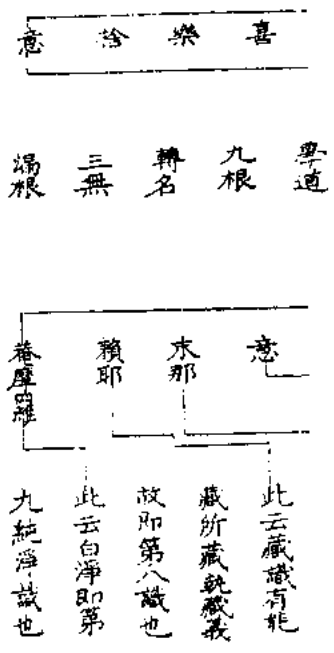 喜
樂
捨
意
學道
九根
轉名
三無
漏根
意
末那
賴耶
菴摩羅
此云藏識有能
藏所藏執藏義
故即第八識也
此云白淨即第
九純淨識也